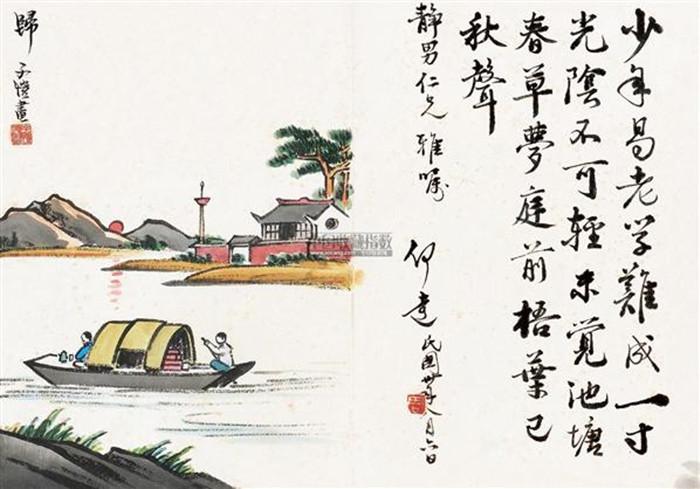 少年易老学難成一寸
光陰不可輕未覺池塘
春草夢庭前梧葉已
秋聲
静男仁兄雅嘱
民國卅年八月六日
歸
子愷畫